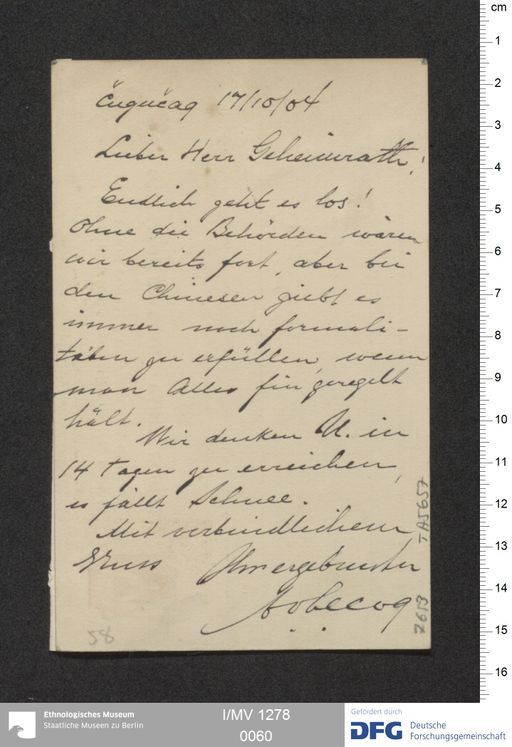 Čugučaq 17/10/04
Lieber Herr Geheimrath!
Endlich geht es los!
Ohne die Behörden wären
wir bereits fort, aber bei
den Chinesen giebt es
immer noch formali-
täten zu erfüllen, wenn
man Alles für geregelt
hält.
Wir denken U. in
14 Tagen zu erreichen,
es fällt Schnee.
Mit verbindlichem
Gruss Ihr ergebenster
AvLecoq
58
TA5657
2613
cm
1
2
3
4
5
6
7
8
9
10
11
12
13
14
15
16
Ethnologisches Museum
Staatliche Museen zu Berlin
I/MV 1278
0060
Gefördert durch
DFG Deutsche
Forschungsgemeinschaft